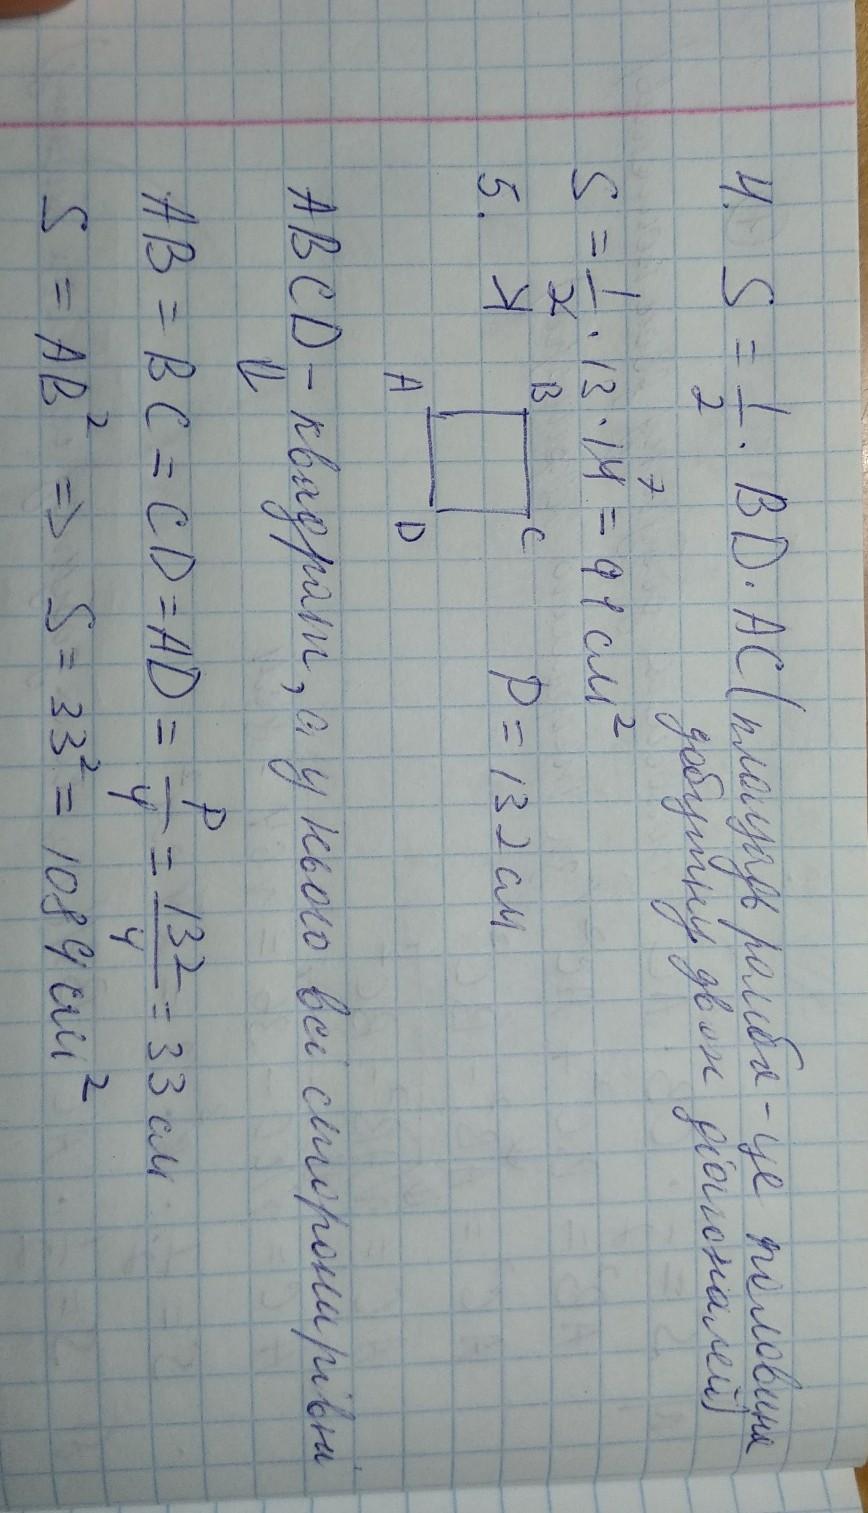 4. S = 1/2 · BD · AC (площа ромба - це половина
добутку двох діагоналей)
S = 1/2 · 13 · 14 7 = 91 см²
5.
B C
A D
P = 132 см
ABCD - квадрат, а у нього всі сторони рівні
⇓
AB = BC = CD = AD = P/4 = 132/4 = 33 см
S = AB² => S = 33² = 1089 см²